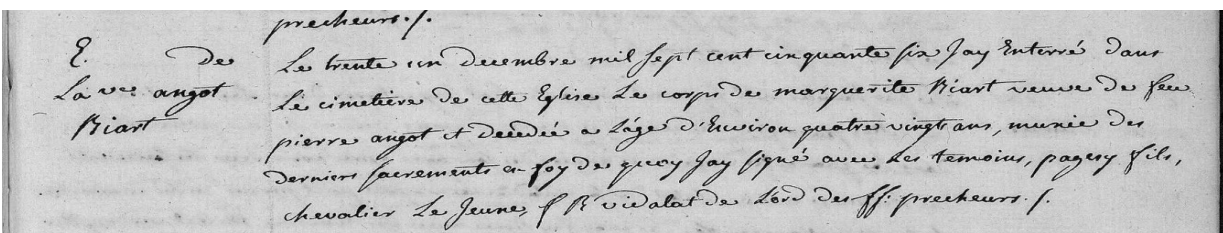 precheurs ./.
E. de
La ve. angot
Riart
Le trente un decembre mil sept cent cinquante six Jay Enterré dans
Le cimetière de cette Eglise Le corps de marguerite Riart veuve de feu
pierre angot et decedée a L'âge d'Environ quatre vingt ans, munie des
derniers sacrements en foy de quoy Jay signé avec Les temoins, pagesy fils,
chevalier Le Jeune, f R vidalat de L'ord des ff. precheurs ./.